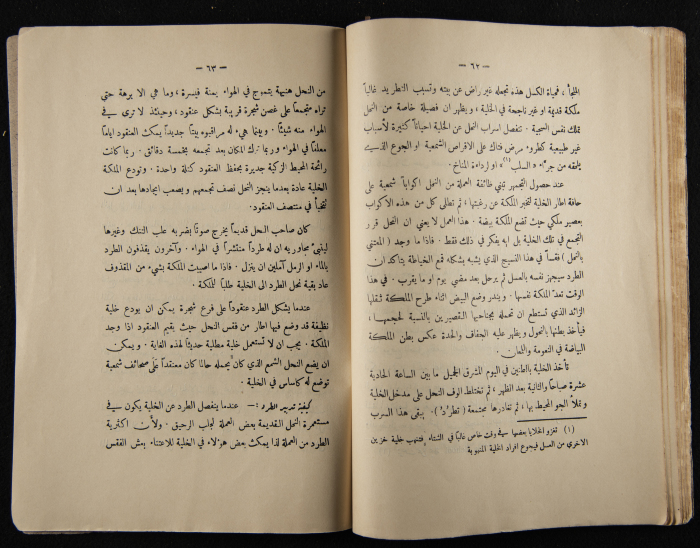 — ٦٢ —
الملجأ ، فحياة الكسل هذه تجعله غير راض عن بيته وتسبب التطريد غالباً
ملكة قديمة او غير ناجحة في الخلية ، ويظهر ان فصيلة خاصة من النحل
تملك نفس السجية . تنفصل اسراب النحل عن الخلية احياناً كثيرة لأسباب
غير طبيعية كطروء مرض فتاك على الاقراص الشمعية او الجوع الذي
يلحقه من جرّاء « السلب (١) » او لرداءة المناخ .
عند حصول التجمهر تبني طائفة العملة من النحل اكواباً شمعية على
حافة اطار الخلية لتخبر الملكة عن رغبتها ، ثم تطلى كل من هذه الاكواب
بعصير ملكي حيث تضع الملكة بيضة . هذا العمل لا يعني ان النحل قرر
التجمع في تلك الخلية بل انه يفكر في ذلك فقط . فاذا ما وجد ( المعتني
بالنحل ) فقساً في هذا النسيج الذي يشبه بشكله قمع الخياطة يتأكد ان
الطرد سيجهز نفسه بالعسل ثم يرحل بعد مضي يوم او ما يقرب . في هذا
الوقت تعد الملكة نفسها . ويندر وضع البيض اثناء طرح الملكة ثقلها
الزائد الذي تستطيع ان تحمله بجناحيها القصيرين بالنسبة لحجمها ،
فيأخذ بطنها بالنحول ويظهر عليه الجفاف والحدة عكس بطن الملكة
البياضة في النعومة واللمعان .
تأخذ الخلية بالطنين في اليوم المشرق الجميل ما بين الساعة الحادية
عشرة صباحاً والثانية بعد الظهر ، ثم تختلط الوف النحل على مدخل الخلية
وتملأ الجو المحيط بها ، ثم تغادرها مجتمعة ( تطرُد ) . يبقى هذا السرب
(١) تغزو الخلايا بعضها في وقت خاص غالباً في الشتاء فتنهب خلية خزين
الاخرى من العسل فيجوع افراد الخلية المنهوبة
— ٦٣ —
من النحل هنيهة يتموج في الهواء يمنة فيسرة ، وما هي الا برهة حتى
تراه متجمعاً على غصن شجرة قريبة بشكل عنقود ، وحينئذ لا ترى في
الهواء منه شيئاً . وبينما هيء له مراقبوه بيتاً جديداً يمكث العنقود اياماً
معلقاً في الهواء وربما ترك المكان بعد تجمعه بخمسة دقائق . ربما كانت
رائحة المحيط الزكية جديرة بحفظ العنقود كتلة واحدة . وتودع الملكة
الخلية عادة بعدما ينجز النحل نصف تجمعهم ويصعب ايجادها بعد ان
تختبأ في منتصف العنقود .
كان صاحب النحل قديماً يخرج صوتاً بضربه علب التنك وغيرها
لينبىء مجاوريه ان له طرداً منتشراً في الهواء . وآخرون يقذفون الطرد
بالماء او الرمل آملين ان ينزل . فاذا ما اصيبت الملكة بشيء من المقذوف
عاد بقية نحل الطرد الى الخلية طلباً للملكة .
عندما يشكل الطرد عنقوداً على فرع شجرة يمكن ان يودع خلية
نظيفة قد وضع فيها اطار من فقس النحل حيث يقيم العنقود اذا وجد
الملكة . يجب ان لا تستعمل خلية مطلية حديثاً لهذه الغاية . ويمكن
ان يضع النحل الشمع الذي كان يحمله حالما كان معتقداً على صحائف شمعية
توضع له كاساس في الخلية .
كيفية تدبير الطرد : — عندما ينفصل الطرد عن الخلية يكون في
مستعمرة النحل القديمة بعض العملة لجلب الرحيق . ولأن اكثرية
الطرد من العملة لذا يمكث بعض هؤلاء في الخلية للاعتناء بعش الفقس